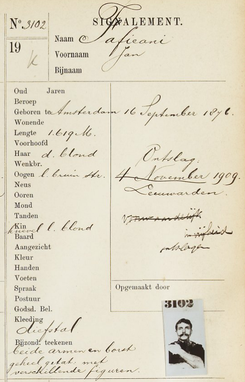 No. 3102 SIGNALEMENT.
19 k Naam Taficani
Voornaam Jan
Bijnaam
Oud Jaren
Beroep
Geboren te Amsterdam 16 September 1876.
Wonende
Lengte 1.619 M.
Voorhoofd
Haar d. blond Ontslag
Wenkbr.
Oogen l bruin str. 4 November 1909.
Neus Leeuwarden.
Ooren
Mond
Tanden
Kin
knevel l. blond
Baard
Aangezicht
Kleur
Handen
Voeten
Spraak Opgemaakt door
Postuur
Godsd. Bel.
Kleeding
diefstal
Bijzond. teekenen
beide armen en borst
geheel getat. met
verschillende figuren.
3102